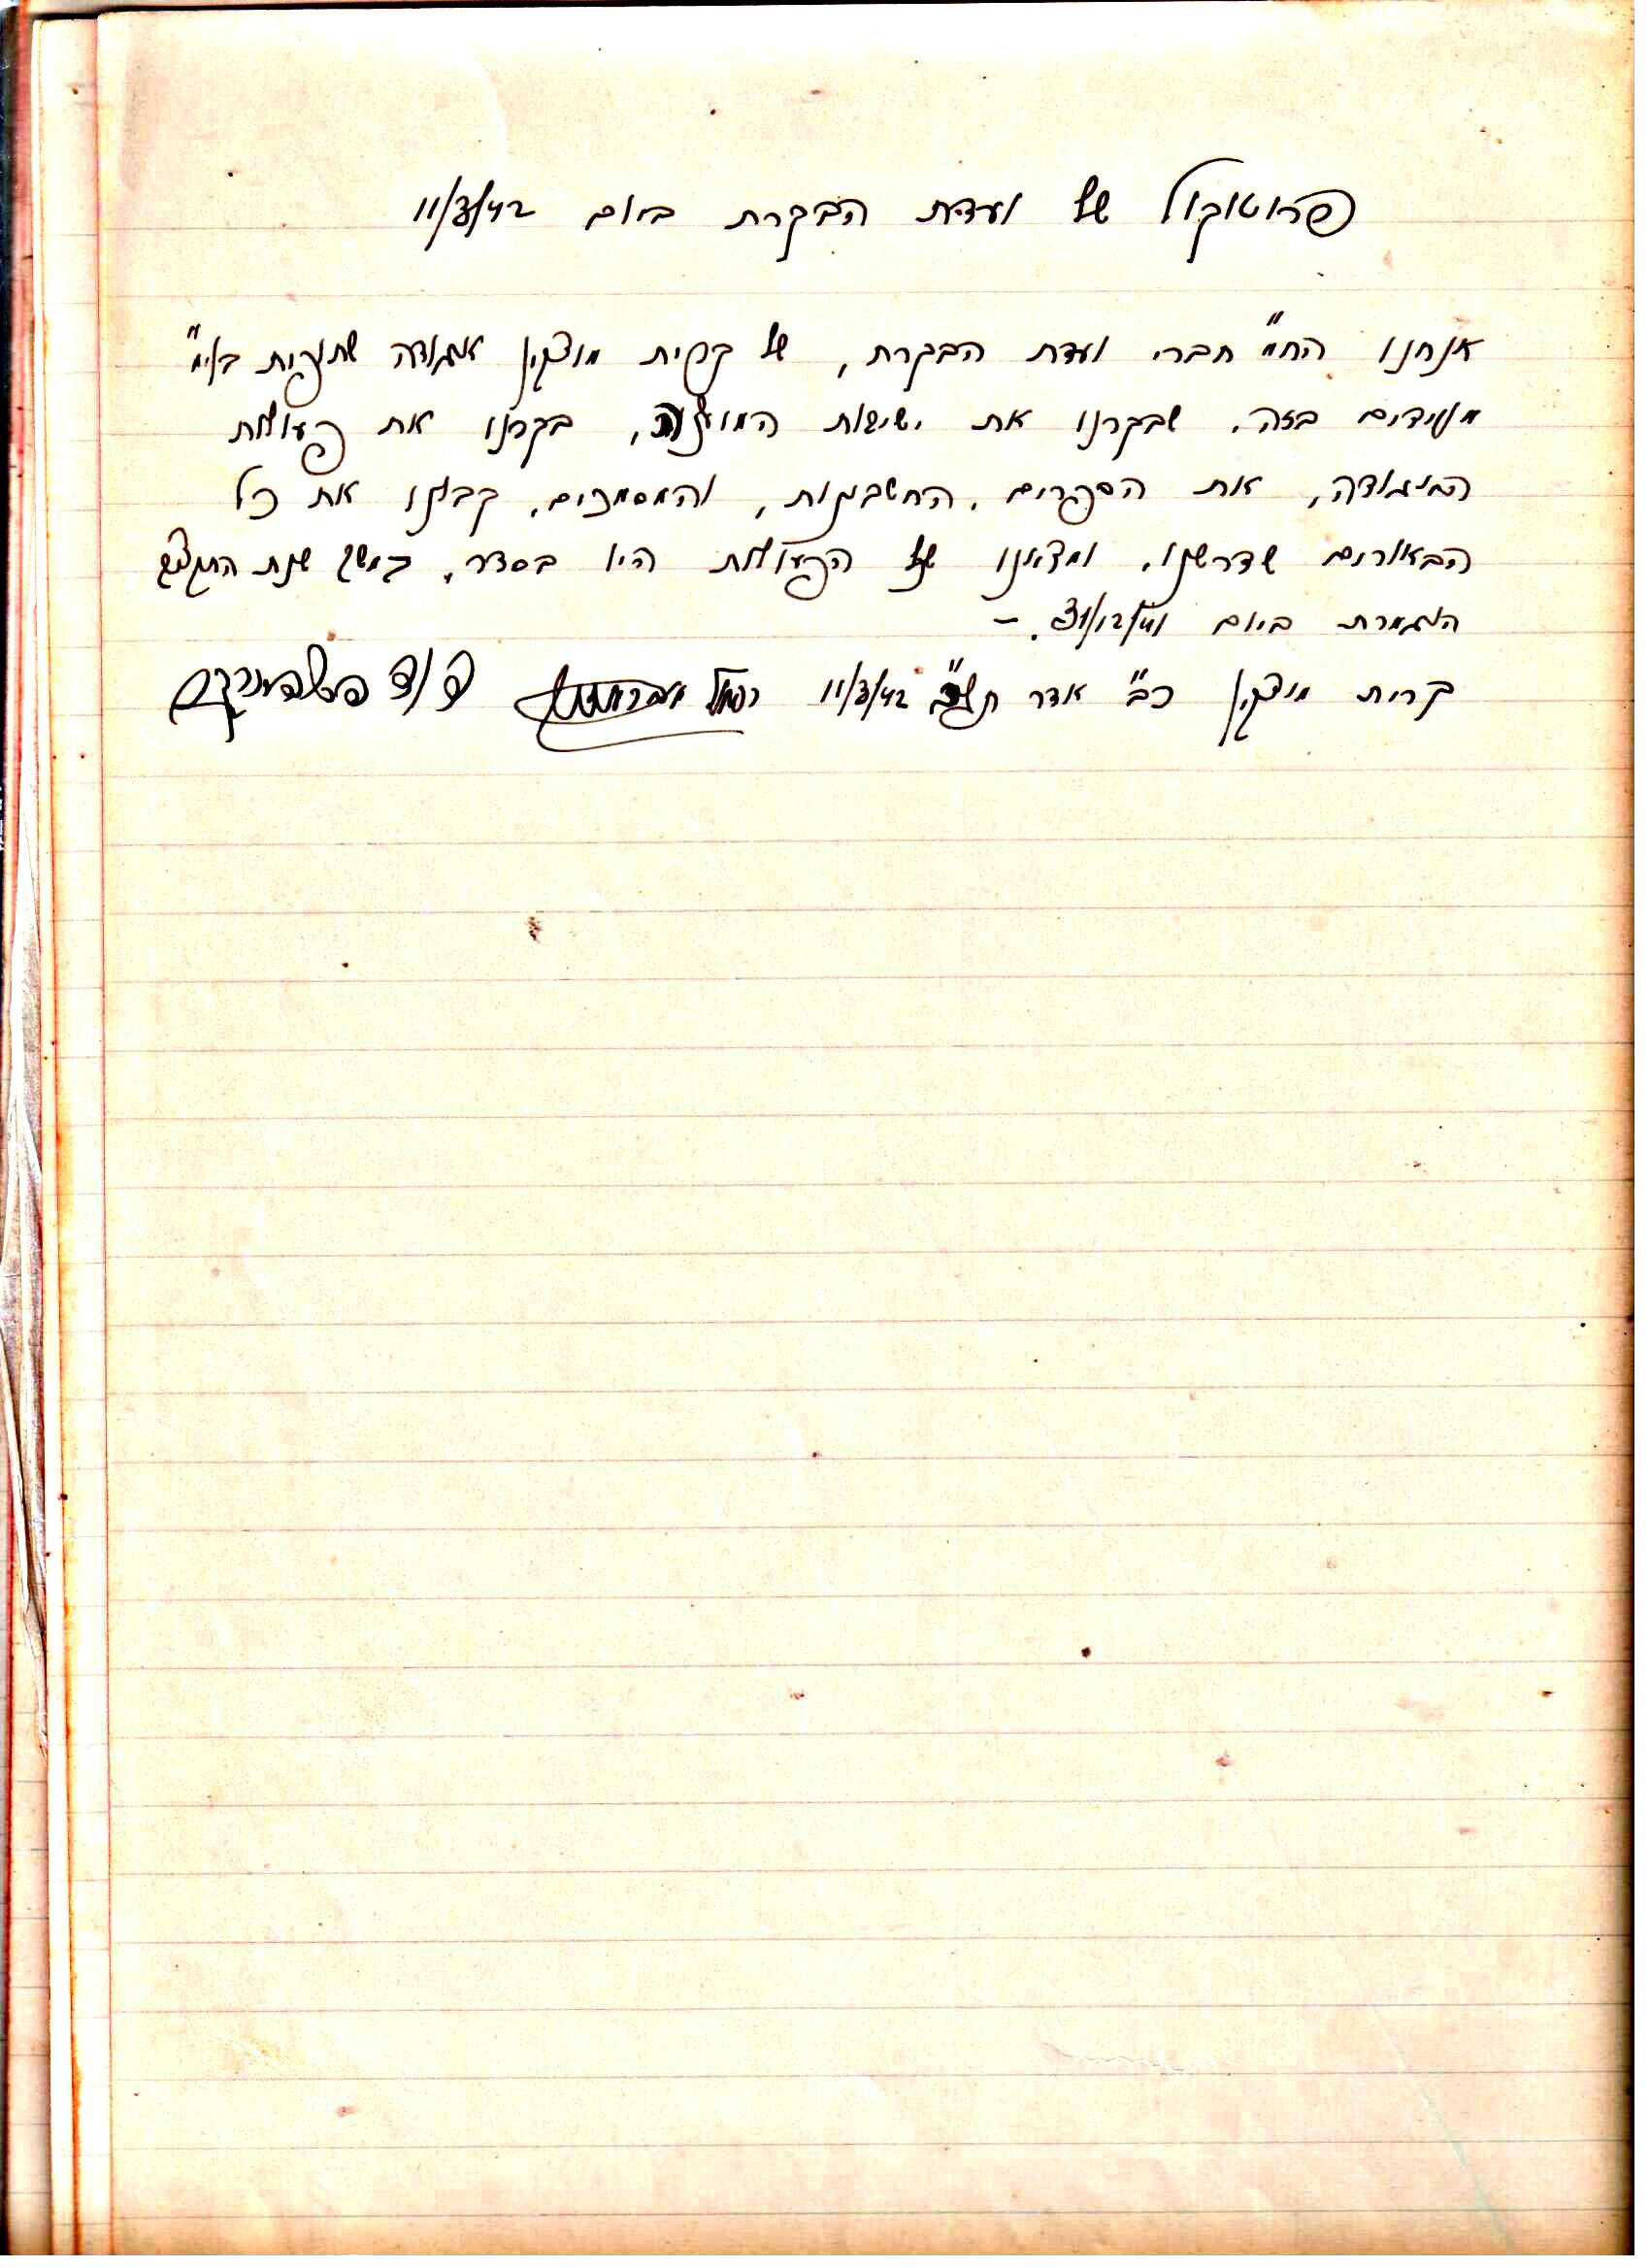 פרוטוקול של ועדת הבקרת ביום 11/3/42
אנחנו החמ" חברי ועדת הבקרת, של קרית מוצקין אגודה שתופית בע"מ
מעידים בזה. שבקרנו את ישיבות המועצה, בקרנו את פעולות
האגודה, את הספרים. החשבונות, והמסמכים. קבלנו את כל
הבאורים שדרשנו. ומצאנו שכל הפעולות היו בסדר. במשך שנת
הנגמרת ביום 31/12/41. –
קרית מוצקין כב" אדר תש"ב 11/3/42